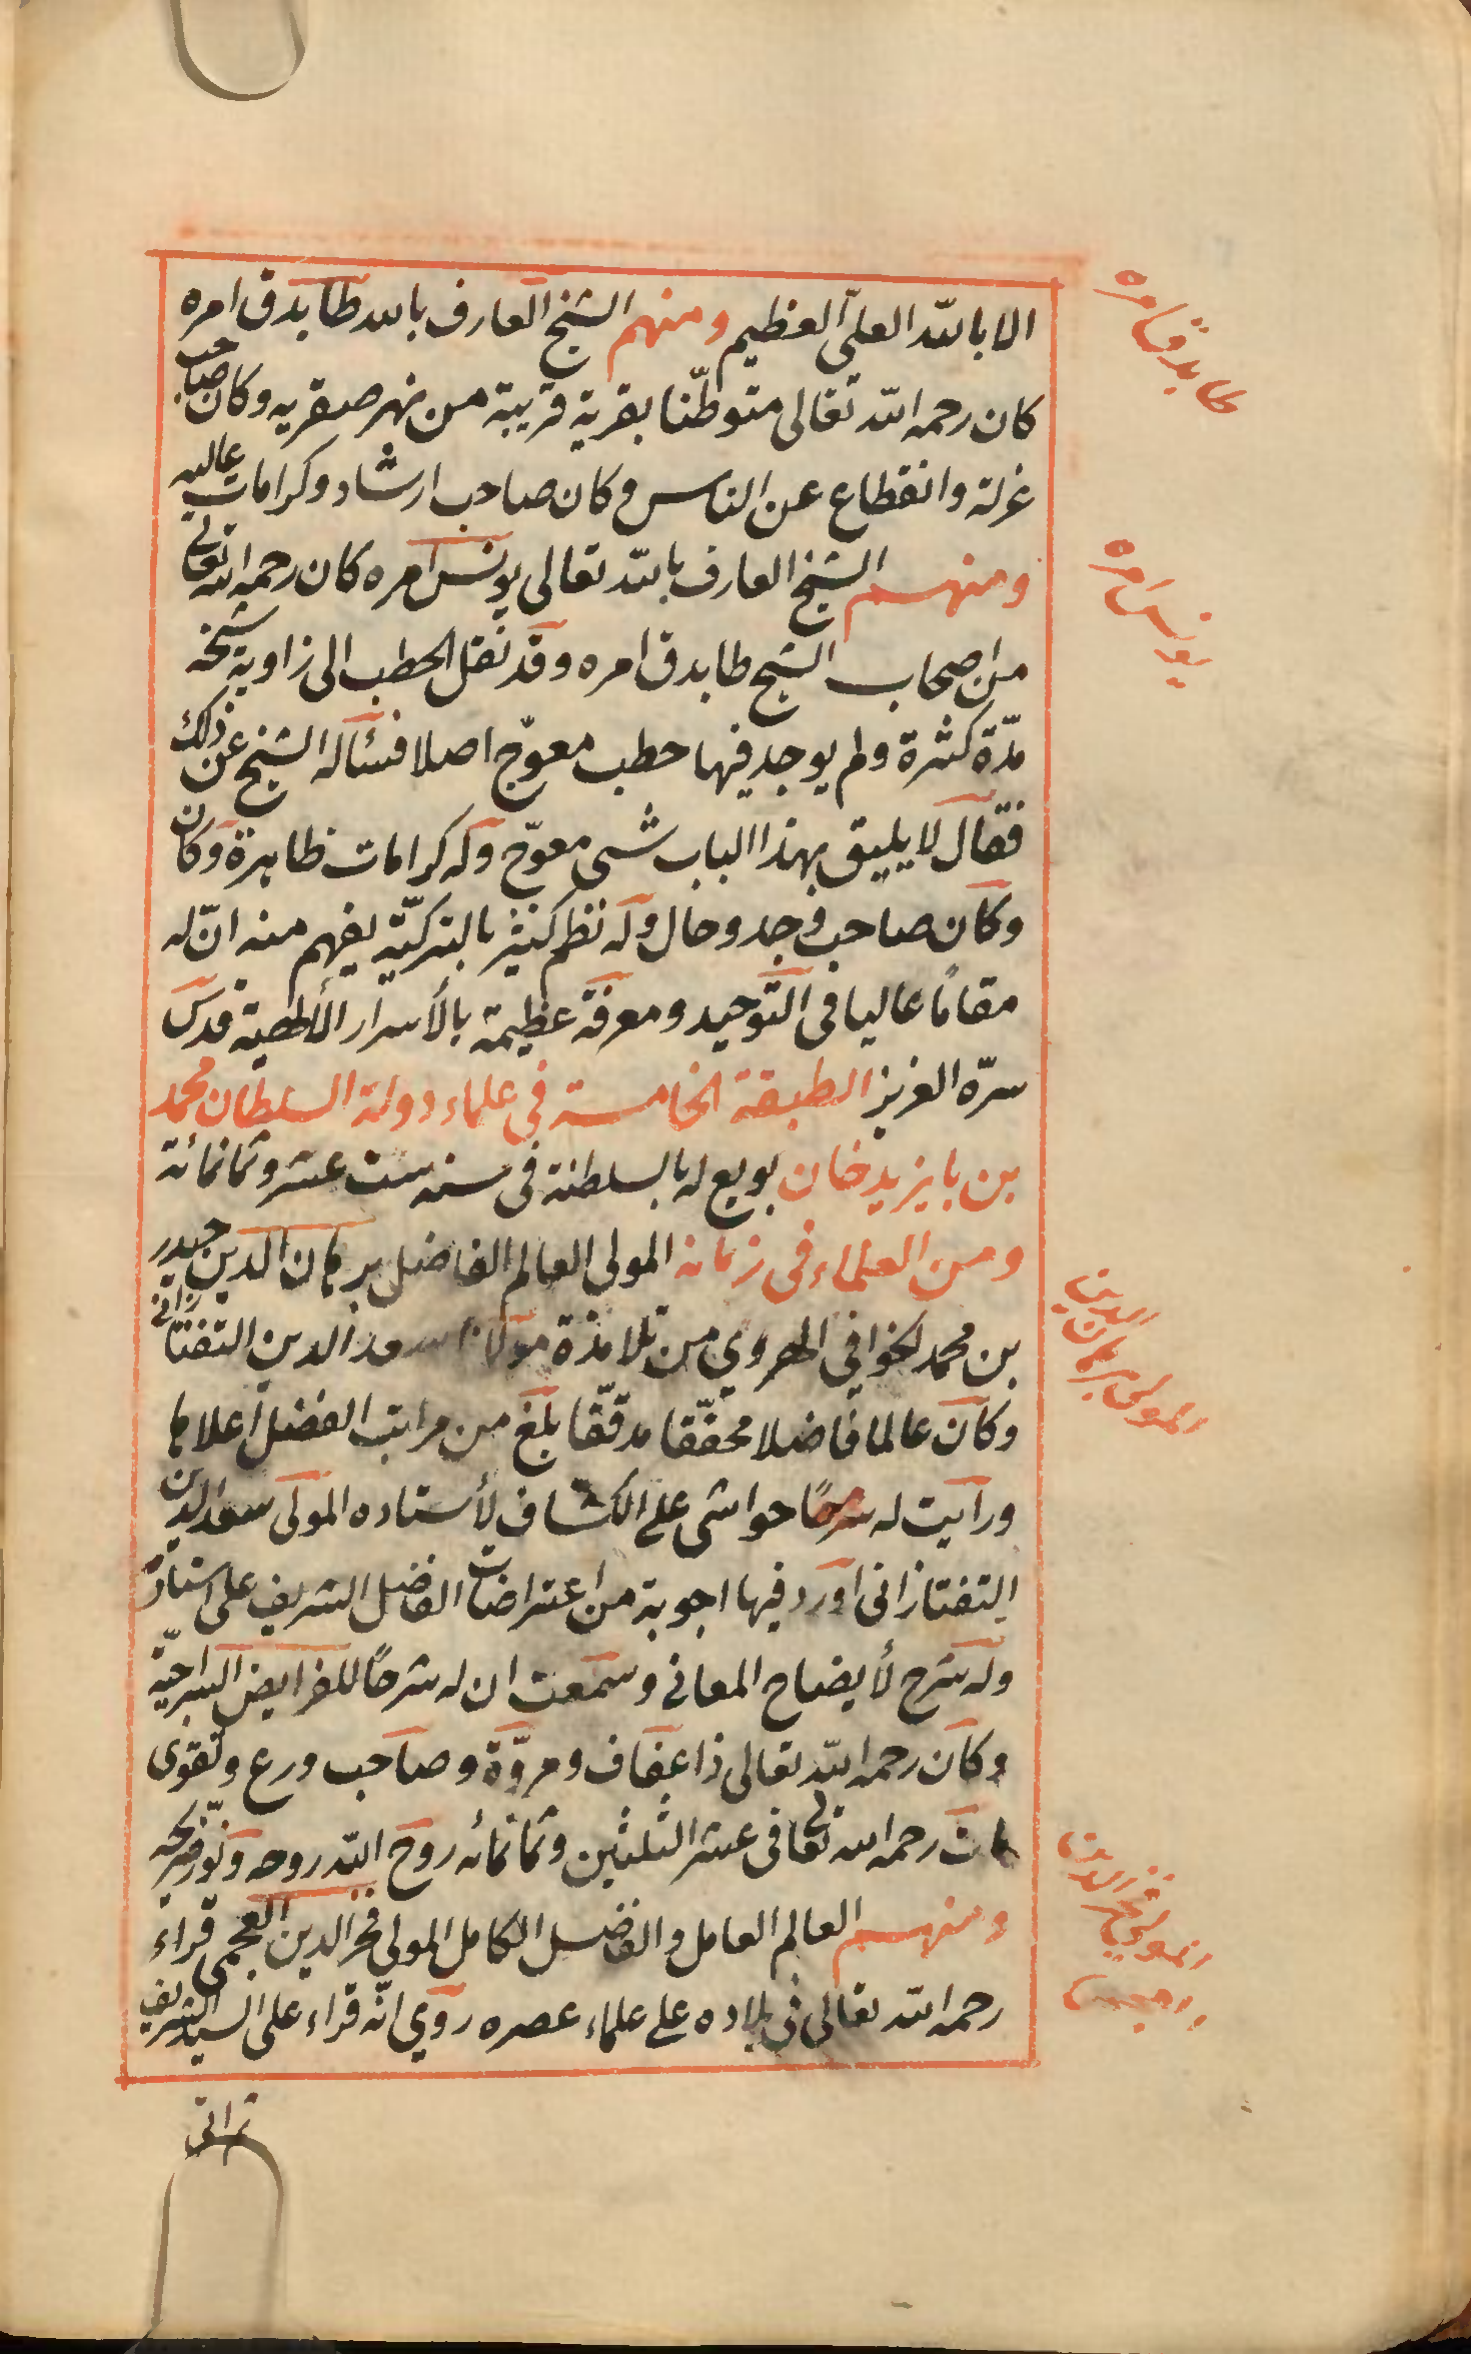 الا بالله العلىّ العظيم ومنهم الشيخ العارف بالله طابدق امره
كان رحمه الله تعالى متوطّنا بقرية قريبة من نهر صقريه وكان صاحب
عزلة وانقطاع عن الناس وكان صاحب ارشاد وكرامات عاليه
ومنهم الشيخ العارف بالله تعالى يونس امره كان رحمه الله تعالى
من اصحاب الشيخ طابدق امره وقد نقل الحطب الى زاوية شيخه
مدّة كثيرة ولم يوجد فيها حطب معوّج اصلا فسأله الشيخ عن ذلك
فقال لا يليق بهذا الباب شىء معوّج وله كرامات ظاهرة وكان
وكان صاحب وجد وحال وله نظم كثير بالتركيّة يفهم منه انّ له
مقامًا عاليا فى التّوحيد ومعرفة عظيمة بالأسرار الألٰهية قدس
سرّه العزيز الطبقة الخامسة فى علماء دولة السلطان محمد
بن بايزيد خان بويع له بالسلطنة فى سنه ست عشر وثمانمائة
ومن العلماء فى زمانه المولى العالم الفاضل برهان الدين حيدر
بن محمد الخوافي الهروي من تلامذة مولانا سعد الدين التفتازانى
وكان عالما فاضلا محقّقا مدقّقا بلغ من مراتب الفضل اعلاها
ورايت له شرحًا حواشى على الكشاف لأستاده المولى سعد الدين
التفتازانى اورد فيها اجوبة من اعتراضات الفاضل الشريف على استاده
وله شرح لأيضاح المعانى وسمعت ان له شرحًا للفرايض السراجيّة
وكان رحمه الله تعالى ذا عفاف ومروّة وصاحب ورع وتقوى
مات رحمه الله تعالى فى عشر الثلثين وثمانمائه روح الله روحه ونوّر ضريحه
ومنهم العالم العامل والفاضل الكامل المولى فخر الدين العجمى قراء
رحمه الله تعالى فى بلاده على علماء عصره روي انّه قراء على السيد الشريف
طابدق امره
يونس امره
المولى برهان الدين
المولى فخر الدين